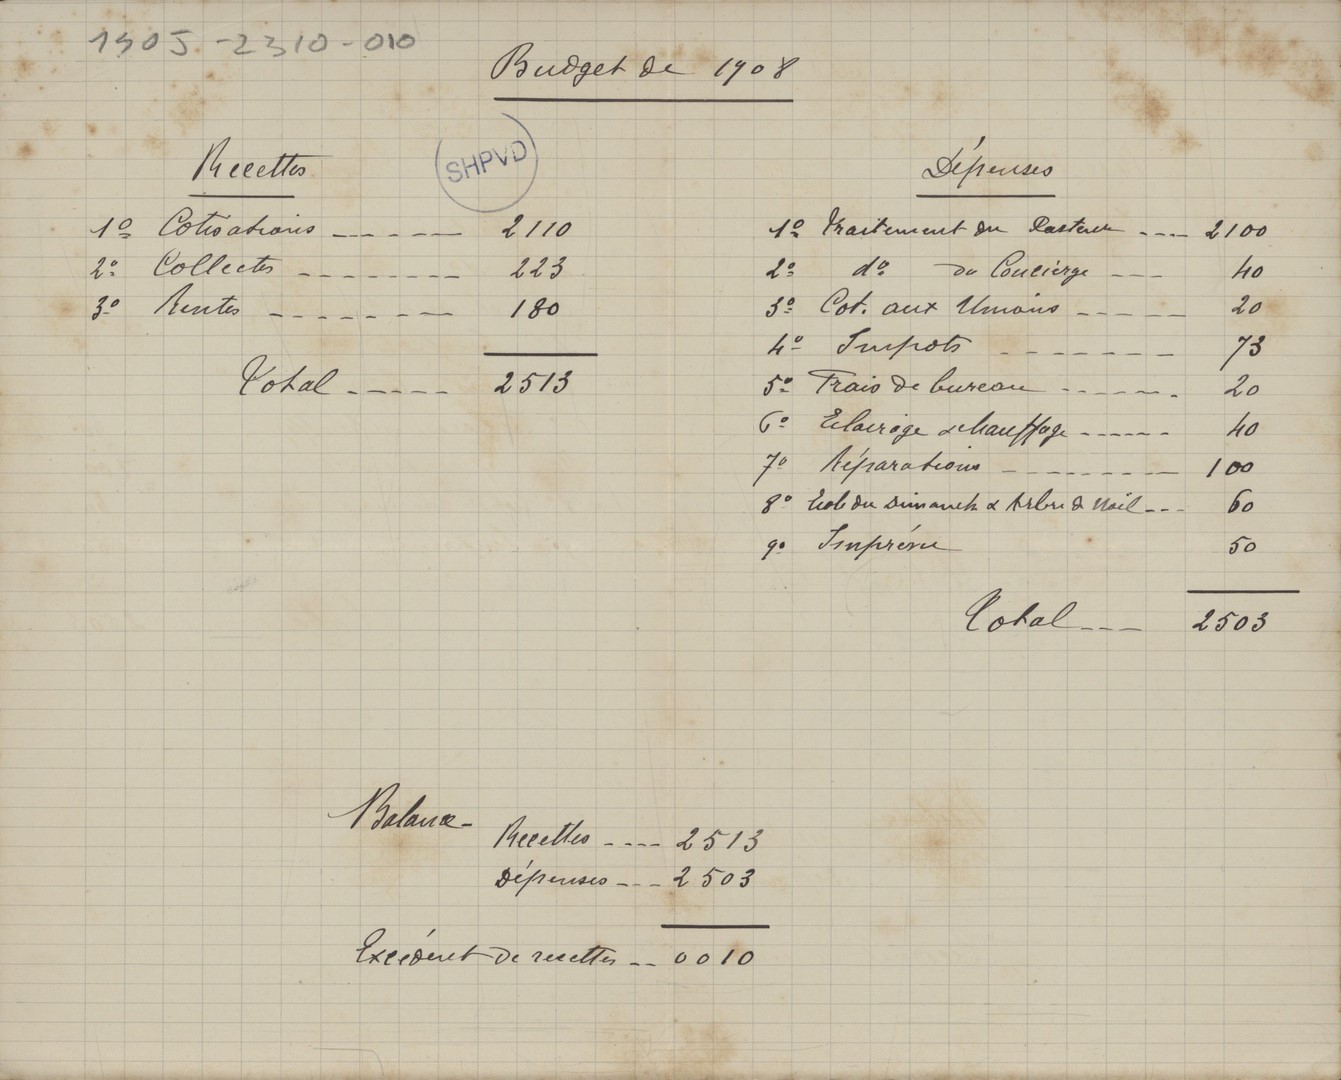 1905-2310-010
Budget de 1908
SHPVD
Recettes
1º Cotisations ------ 2110
2º Collectes -------- 223
3º Rentes -------- 180
Total ----- 2513
Dépenses
1º Traitement du Pasteur ---- 2100
2º dº du Concierge --- 40
3º Cot. aux Unions ----- 20
4º Impots ------- 73
5º Frais de bureau ------- 20
6º Eclairage & chauffage ------ 40
7º Réparations --------- 100
8º Ecole du Dimanche & Arbre de Noël --- 60
9º Imprévu 50
Total --- 2503
Balance -
Recettes ---- 2513
Dépenses --- 2503
Excédent de recettes -- 0010